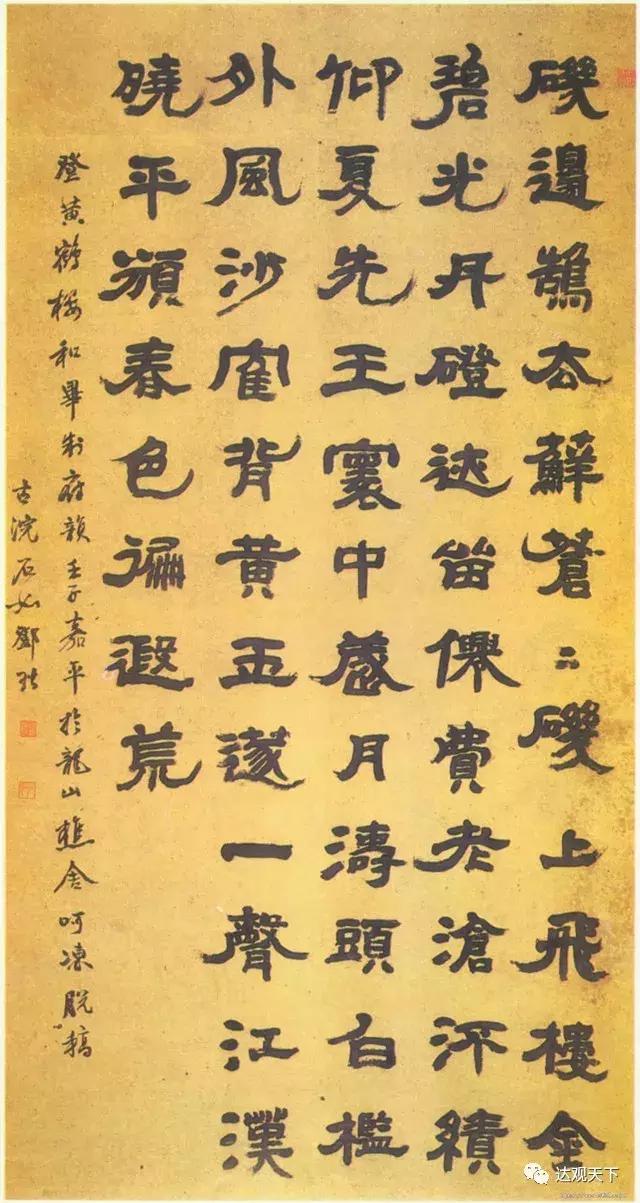 磯邊鵠去蘚蒼〻磯上飛樓金
碧光丹磴迹留僊費老滄沔績
仰夏先王寰中歲月濤頭白檻
外風沙雁背黃玉篴一聲江漢
曉平春色徧遐荒
登黃鶴樓和畢制府韻壬子嘉平於龍山樵舍呵凍脫稿
古浣石如鄧琰
达观天下